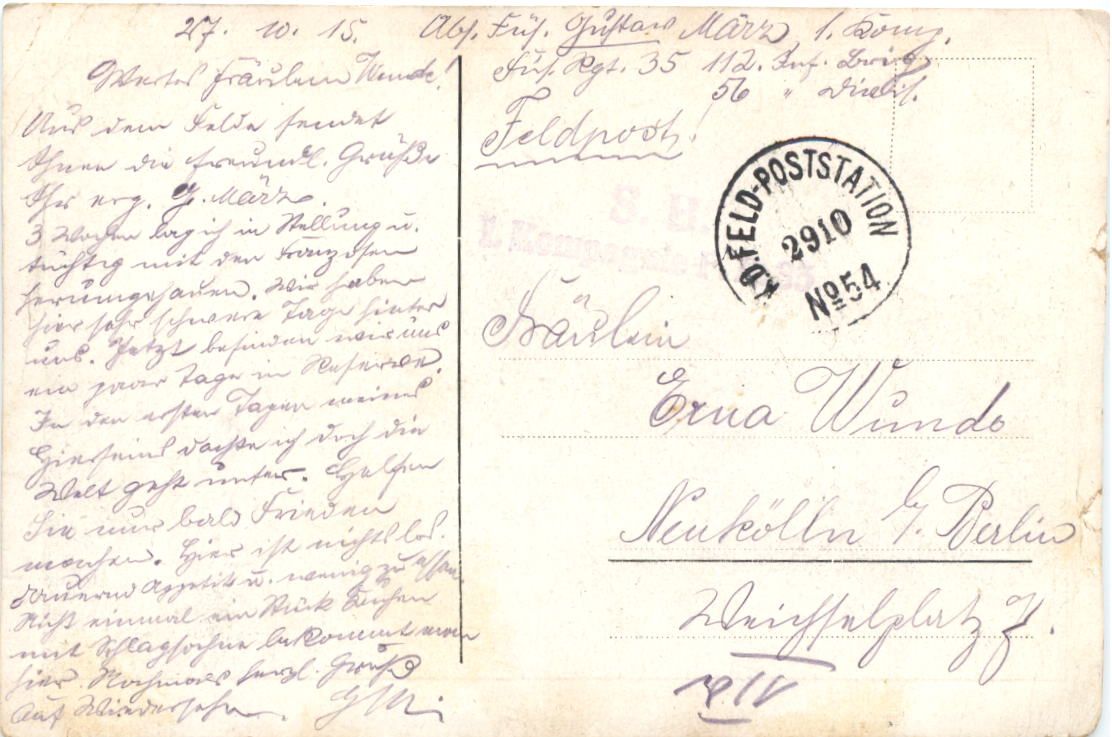 27. 10. 15. Abs. Füs. Gustav März 1. Komp.
Füs. Rgt. 35 112. Inf. Brig.
56 " Divis.
Feldpost!
Wertes Fräulein Wunde!
Aus dem Felde sendet
Ihnen die freundl. Grüße
Ihr erg. G. März.
3 Wochen lag ich in Stellung u.
tüchtig mit den Franzosen
herumgehauen. Wir haben
hier sehr schwere Tage hinter
uns. Jetzt befinden wir uns
ein paar Tage in Reserve.
In den ersten Tagen meines
Hierseins dachte ich doch die
Welt geht unter. Helfen
Sie nur bald Frieden
machen. Hier ist nichts los.
Dauernd Appetit u. wenig zu essen.
Nicht einmal ein Stück Kuchen
mit Schlagsahne bekommt man
hier. Nochmals herzl. Gruß
Auf Wiedersehn.
S. B.
1. Kompagnie
K.D. FELD-POSTSTATION
2910
No 54
Fräulein
Erna Wunde
Neukölln b/ Berlin
Weichselplatz
IV